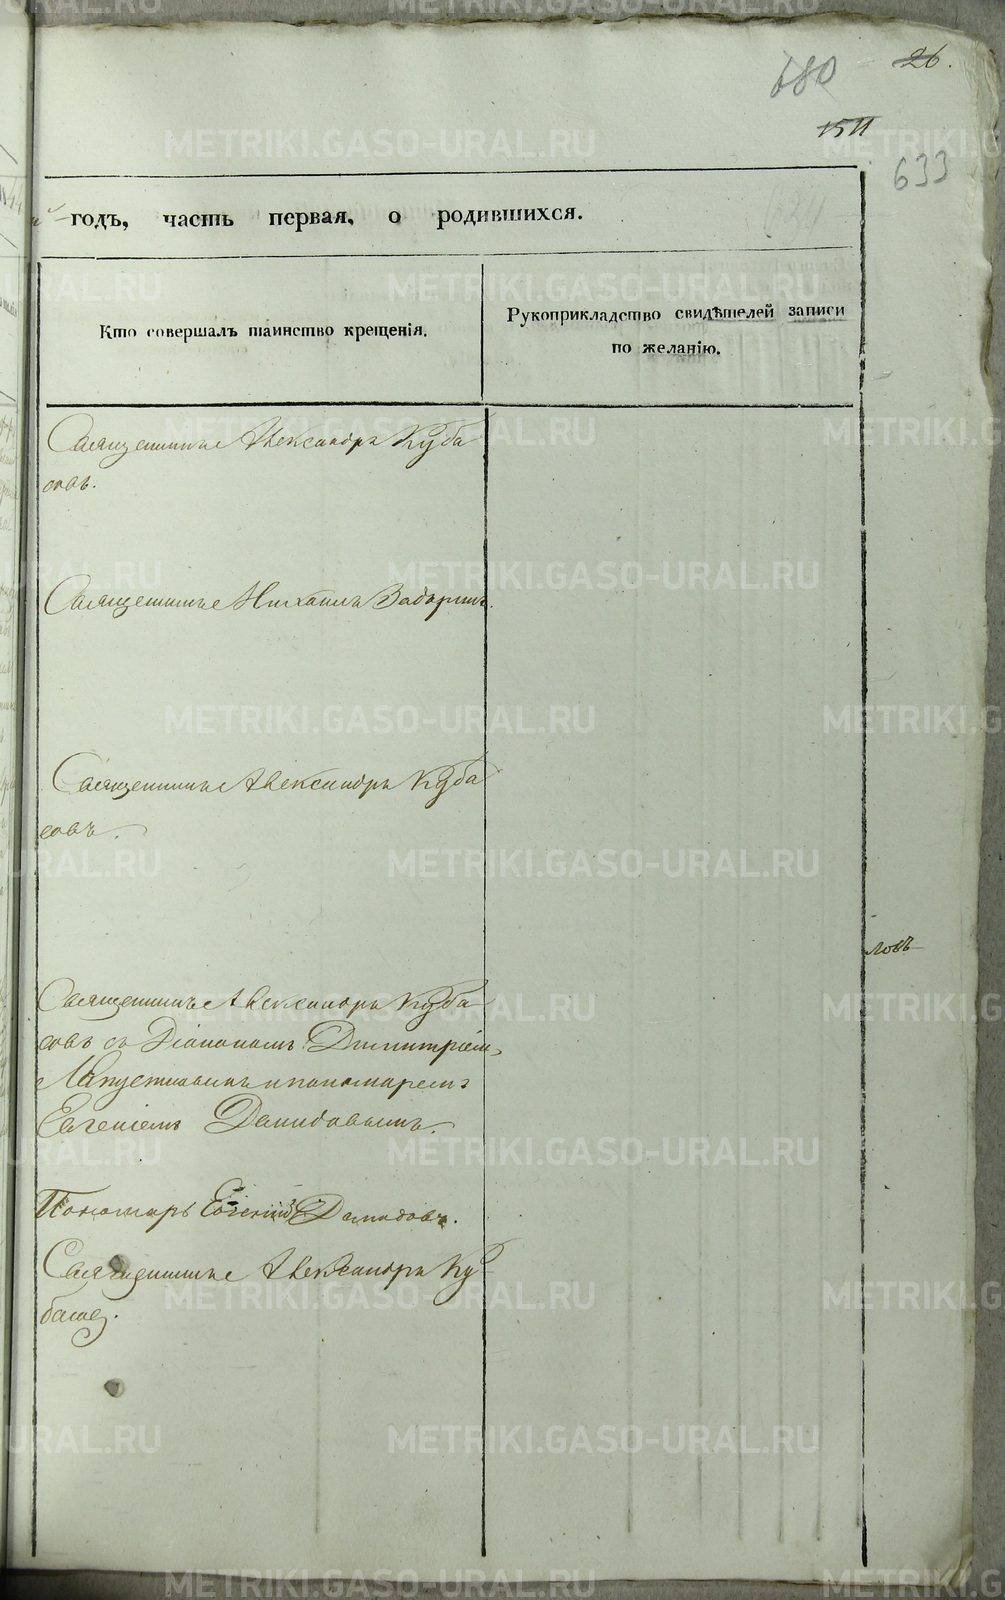 26.
680
1511
633
годъ, часть первая, о родившихся.
Кто совершалъ таинство крещенія.
Рукоприкладство свидѣтелей записи
по желанію.
Священникъ Александръ Куба
совъ.
Священникъ Михаилъ
Священникъ Александръ Куба
совъ.
ловъ
Священникъ Александръ Куба
совъ со Діакономъ Димитріемъ
и пономаремъ
Евгеніемъ Демидовымъ.
Пономарь Евгеній Демидовъ.
Священникъ Александръ Ку
METRIKI.GASO-URAL.RU